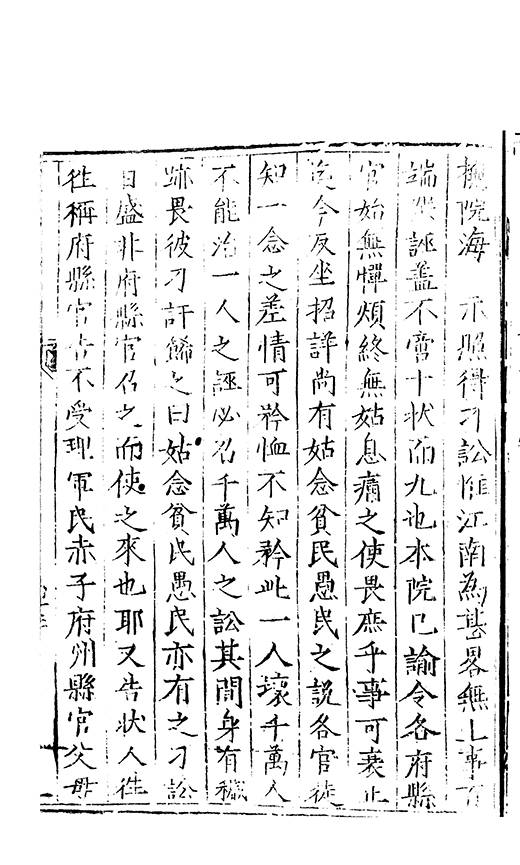 撫院海 示照得刁訟惟江南為甚畧無上事百
端架誣蓋不啻十状而九也本院已諭令各府縣
官始無憚煩終無姑息痛之使畏庶乎事可衰止
迄今反坐招詳尚有姑念貧民愚民之説各官徒
知一念之差情可矜恤不知矜此一人壞千萬人
不能治一人之誣必召千萬人之訟其間身有穢
跡畏彼刁訐餙之曰姑念貧民愚民亦有之刁訟
日盛非府縣官召之而使之來也耶又告状人徃
徃稱府縣官告不受理軍民赤子府州縣官父母